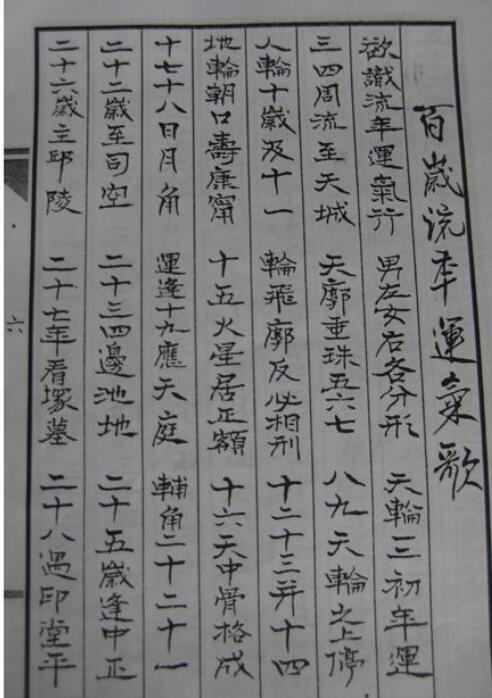 百歲流年運氣歌
欲識流年運氣行 男左女右各分形 天輪三初年運
三四周流至天城 天廓垂珠五六七 八九天輪之上停
人輪十歲及十一 輪飛廓反必相刑 十二十三并十四
地輪朝口壽康甯 十五火星居正額 十六天中骨格成
十七十八日月角 運逢十九應天庭 輔角二十二十一
二十二歲至司空 二十三四邊池地 二十五歲逢中正
二十六歲主邱陵 二十七年看塚墓 二十八遇印堂平
六